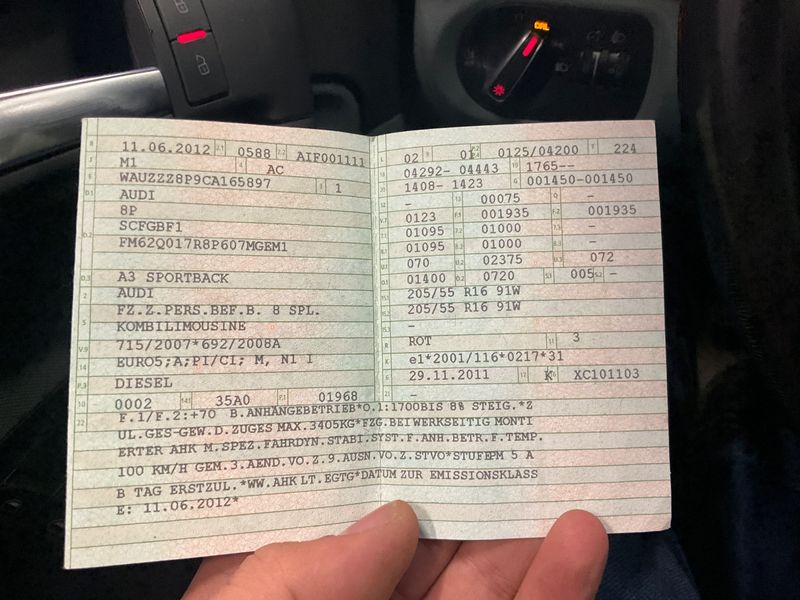 B 11.06.2012 2.1 0588 2.2 AIF001111
J M1 4 AC
E WAUZZZ8P9CA165897 3 1
D.1 AUDI
8P
D.2 SCFGBF1
FM62Q017R8P607MGEM1
D.3 A3 SPORTBACK
2 AUDI
FZ.Z.PERS.BEF.B. 8 SPL.
5 KOMBILIMOUSINE
V.9 715/2007*692/2008A
14 EURO5;A;PI/CI; M, N1 I
P.3 DIESEL
10 0002 14.1 35A0 P.1 01968
L 02 9 01 P.2 0125/04200 T 224
18 04292- 04443 19 1765--
20 1408- 1423 G 001450-001450
12 - 13 00075 Q -
V.7 0123 F.1 001935 F.2 001935
7.1 01095 7.2 01000 7.3 -
8.1 01095 8.2 01000 8.3 -
U.1 070 U.2 02375 U.3 072
O.1 01400 O.2 0720 S.1 005 S.2 -
15.1 205/55 R16 91W
15.2 205/55 R16 91W
15.3 -
R ROT 11 3
K e1*2001/116*0217*31
6 29.11.2011 17 K 16 XC101103
21 -
22 F.1/F.2:+70 B.ANHÄNGEBETRIEB*O.1:1700BIS 8% STEIG.*Z
UL.GES-GEW.D.ZUGES MAX.3405KG*FZG.BEI WERKSEITIG MONTI
ERTER AHK M.SPEZ.FAHRDYN.STABI.SYST.F.ANH.BETR.F.TEMP.
100 KM/H GEM.3.AEND.VO.Z.9.AUSN.VO.Z.STVO*STUFEPM 5 A
B TAG ERSTZUL.*WW.AHK LT.EGTG*DATUM ZUR EMISSIONSKLASS
E: 11.06.2012*